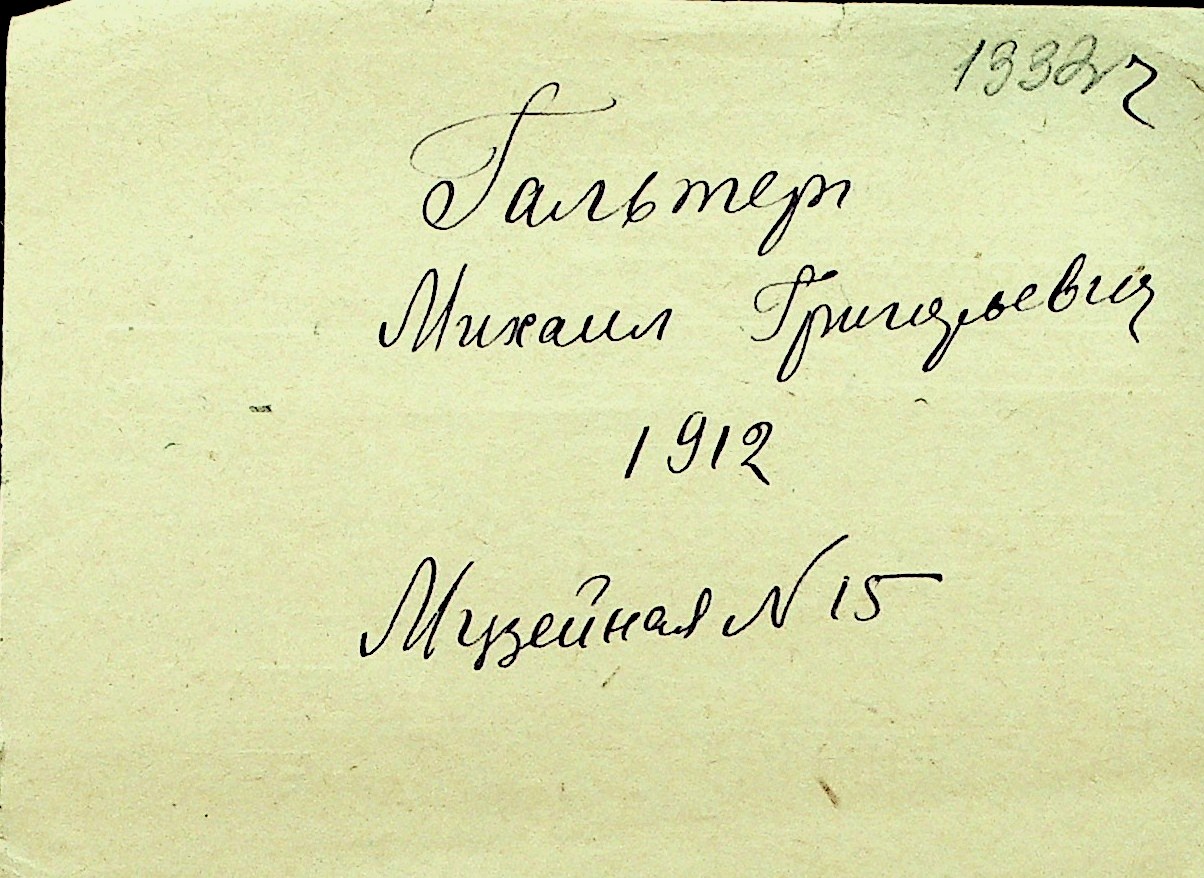 Гальтерн
Михаил Григорьевич
1912
Музейная N 15